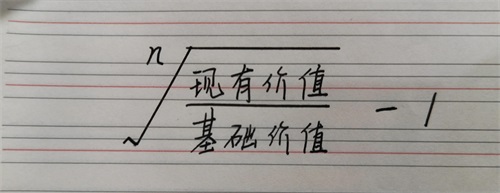 n√(现有价值/基础价值) - 1